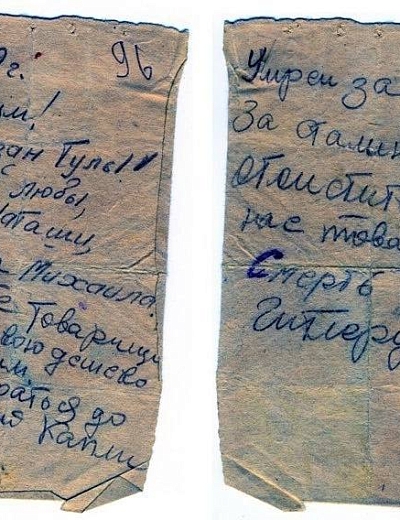 г.
96
м!
зан Гуль!
с
Любы,
таши,
Михаила.
Товарищи
свою дешево
м.
раться до
Капли
Умрем за
За Стали
Отомстит
нас това
Смерть
Гитлеру